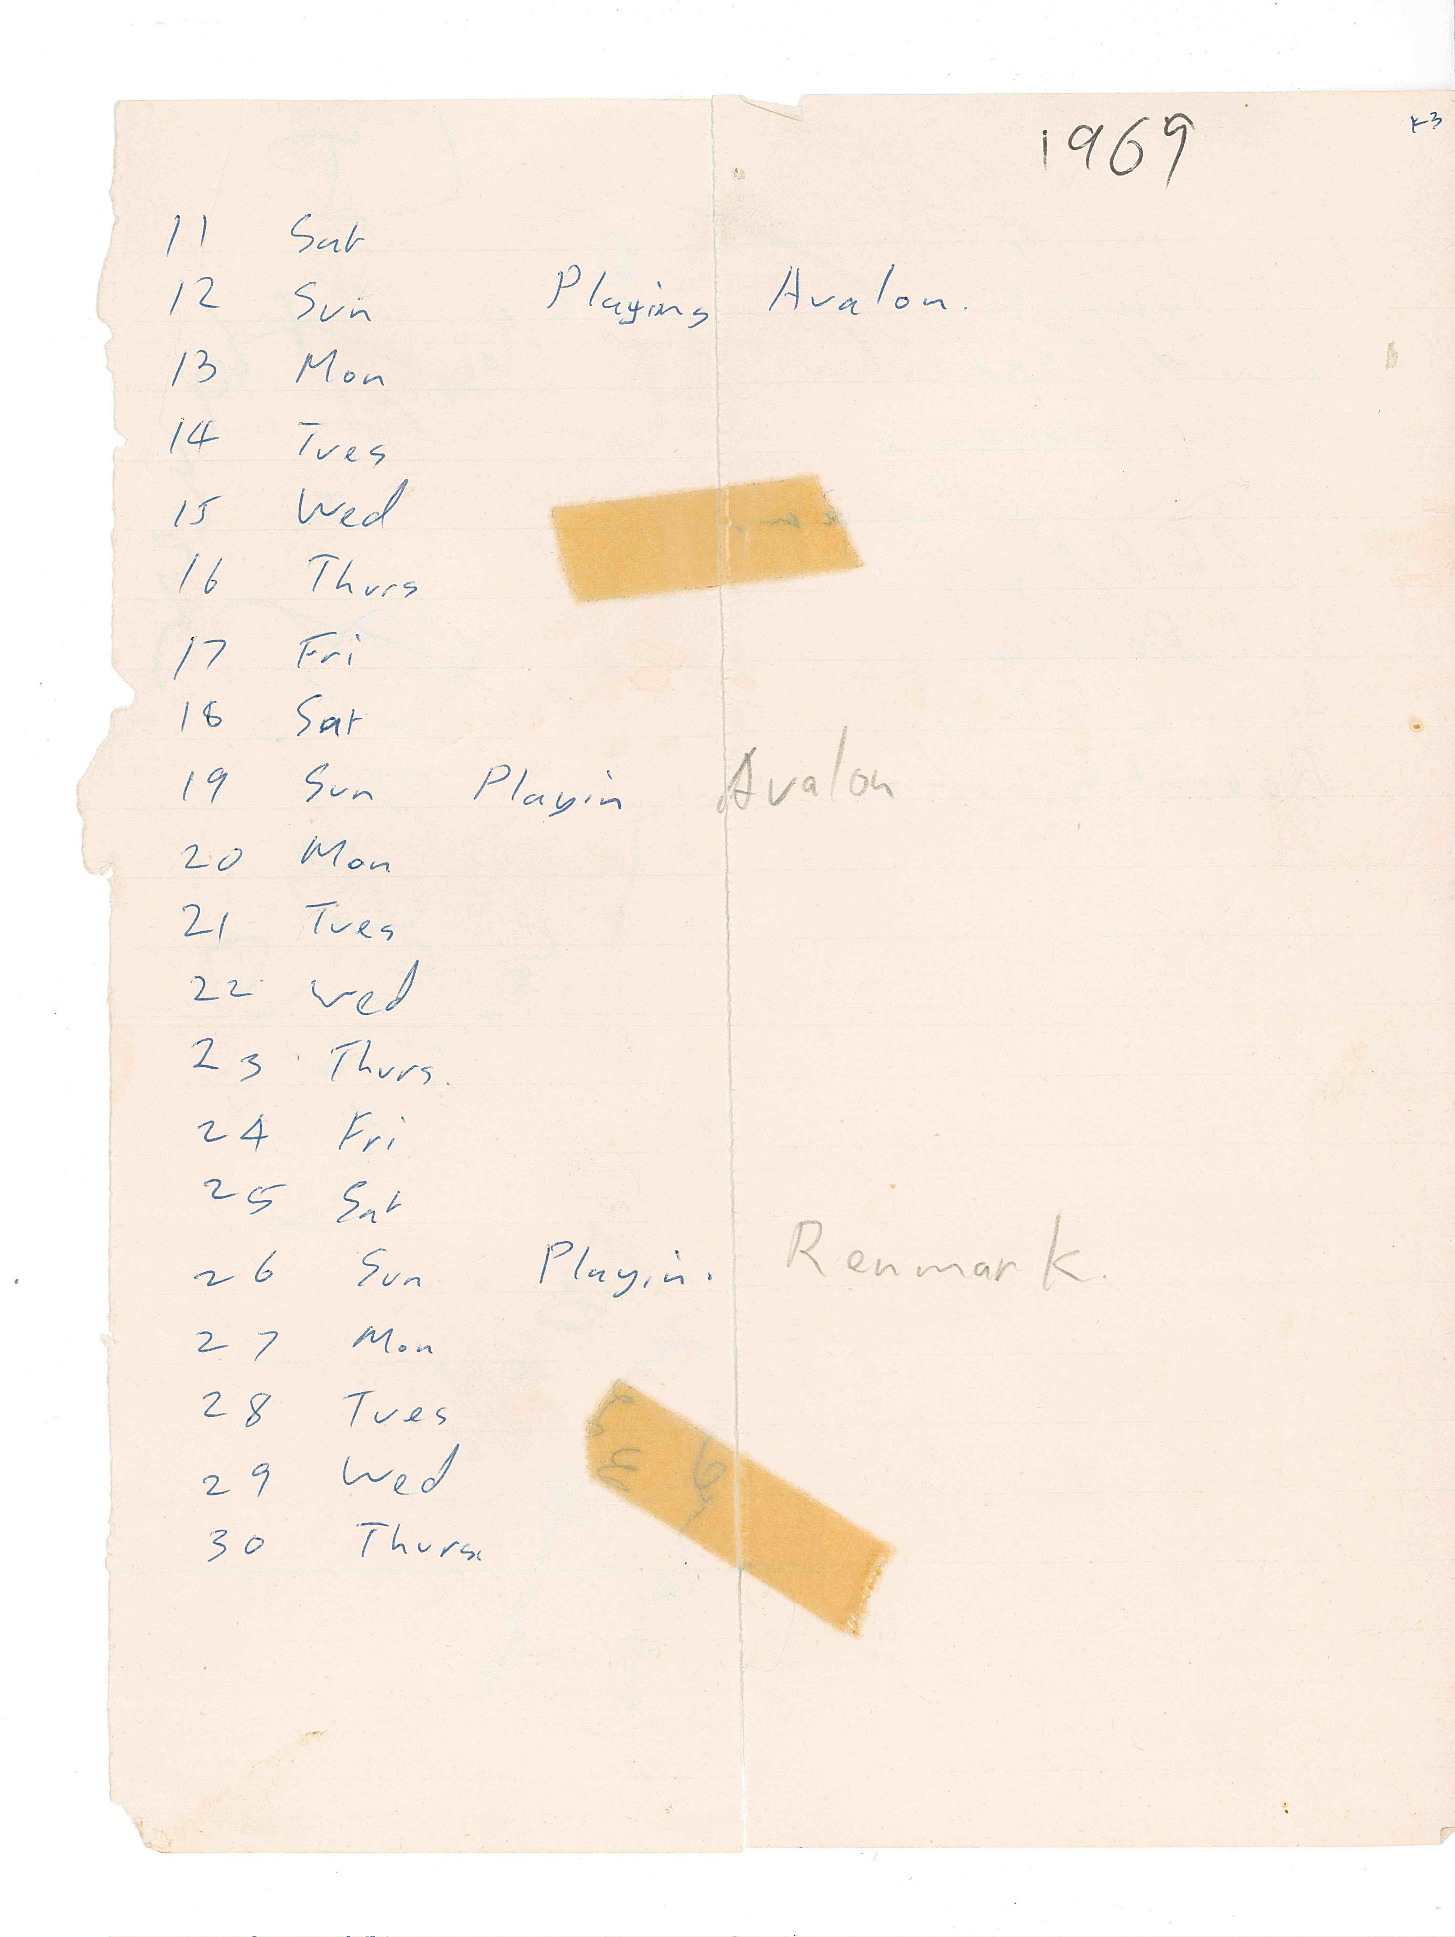 1969
11 Sat
12 Sun Playing Avalon.
13 Mon
14 Tues
15 Wed
16 Thurs
17 Fri
18 Sat
19 Sun Playin Avalon
20 Mon
21 Tues
22 Wed
23 Thurs.
24 Fri
25 Sat
26 Sun Playin. Renmark.
27 Mon
28 Tues
29 Wed
30 Thurs.